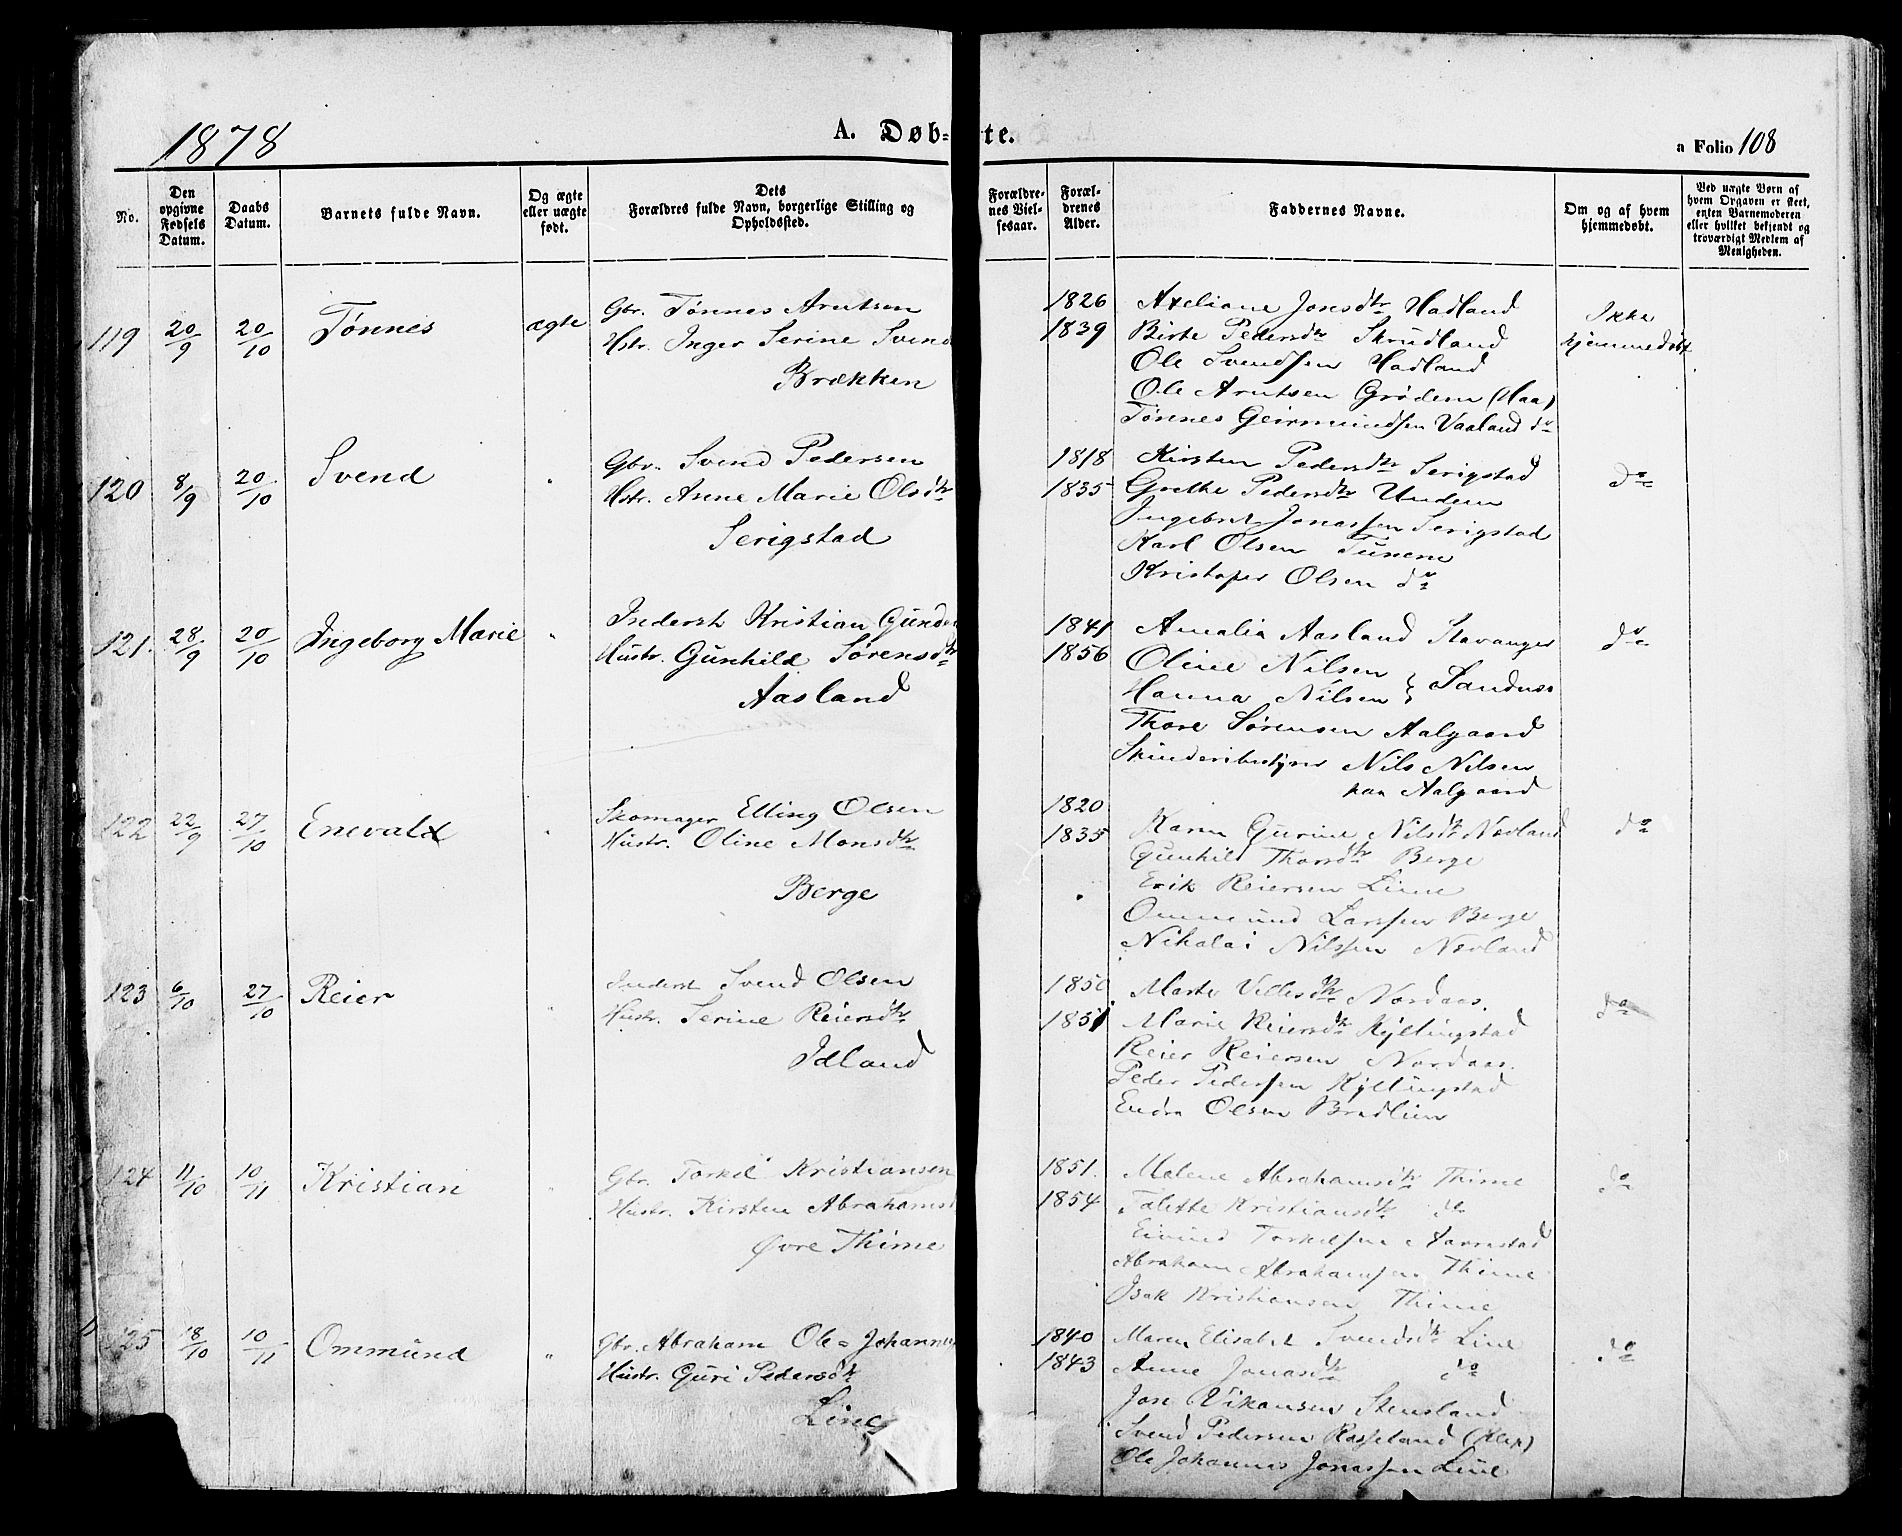 1878
A. Døb- te.
a Folio 108
No.
Den opgivne Fødsels Datum.
Daabs Datum.
Barnets fulde Navn.
Og ægte eller uægte født.
Dets Forældres fulde Navn, borgerlige Stilling og Opholdssted.
Forældrenes Vielsesaar.
Forældrenes Alder.
Faddernes Navne.
Om og af hvem hjemmedøbt.
Ved uægte Børn af hvem Opgaven er skeet, enten Barnemoderen eller hvilket bekjendt og troværdigt Medlem af Menigheden.
119 20/9 20/10 Tønnes ægte
Gbr. Tønnes Arntsen
Hstr. Inger Serine Svend
Brækken
1826
1839
Axeliane Jonsdtr Hadland
Birte Pedersdtr Skrudland
Ole Svendsen Hadland
Ole Arntsen Grødem (Haa)
Tønnes Geirmundsen Vaaland do
Ikke
hjemmedøbt
120 8/9 20/10 Svend "
Gbr. Svend Pedersen
Hstr. Anne Marie Olsdtr
Serigstad
1818
1835
Kirsten Pedersdtr Serigstad
Grethe Pedersdtr Undem
Ingebret Jonassen Serigstad
Karl Olsen Tunene
Kristofer Olsen do
do
121. 28/9 20/10 Ingeborg Marie "
Inderst Kristian Gunder
Hustr. Gunhild Sørensdtr
Aasland
1841
1856
Amalia Aasland Stavanger
Oline Nilsen
Hanna Nilsen } Sandnes
Thore Sørensen Aalgaard
Nils Nilsen
paa Aalgaard
do
122 22/9 27/10 Enevald "
Skomager Elling Olsen
Hustr. Oline Monsdtr
Berge
1820
1835
Karen Gurine Nilsdtr Nævland
Gunhild Thorsdtr Berge
Erik Reiersen Line
Ommund Larssen Berge
Nikolai Nilssen Nævland
do
123 6/10 27/10 Reier "
Inderst Svend Olsen
Hustr. Serine Reiersdtr
Idland
1850
1851
Marte Villesdtr Nordaas.
Marie Reiersdtr Kyllingstad
Reier Reiersen Nordaas.
Peder Pedersen Kyllingstad
Endre Olsen Bradlien
do
124 11/10 10/11 Kristian "
Gbr. Torkel Kristiansen
Hustr. Kirsten Abrahamsd
Øvre Thime
1851.
1854
Malene Abrahamsdtr Thime
Talette Kristiansdtr do
Eivind Torkelsen Aarrestad
Abraham Abrahamsen Thime
Isak Kristiansen Thime
do
125 18/10 10/11 Ommund "
Gbr. Abraham Ole = Johannes
Hustr. Guri Pedersdtr
Line
1840
1843
Maren Elisabet Svendsdtr Line
Anne Jonasdtr do
Jon Vikansen Stensland
Svend Pedersen Rosseland (Klep)
Ole Johannes Jonassen Line
do